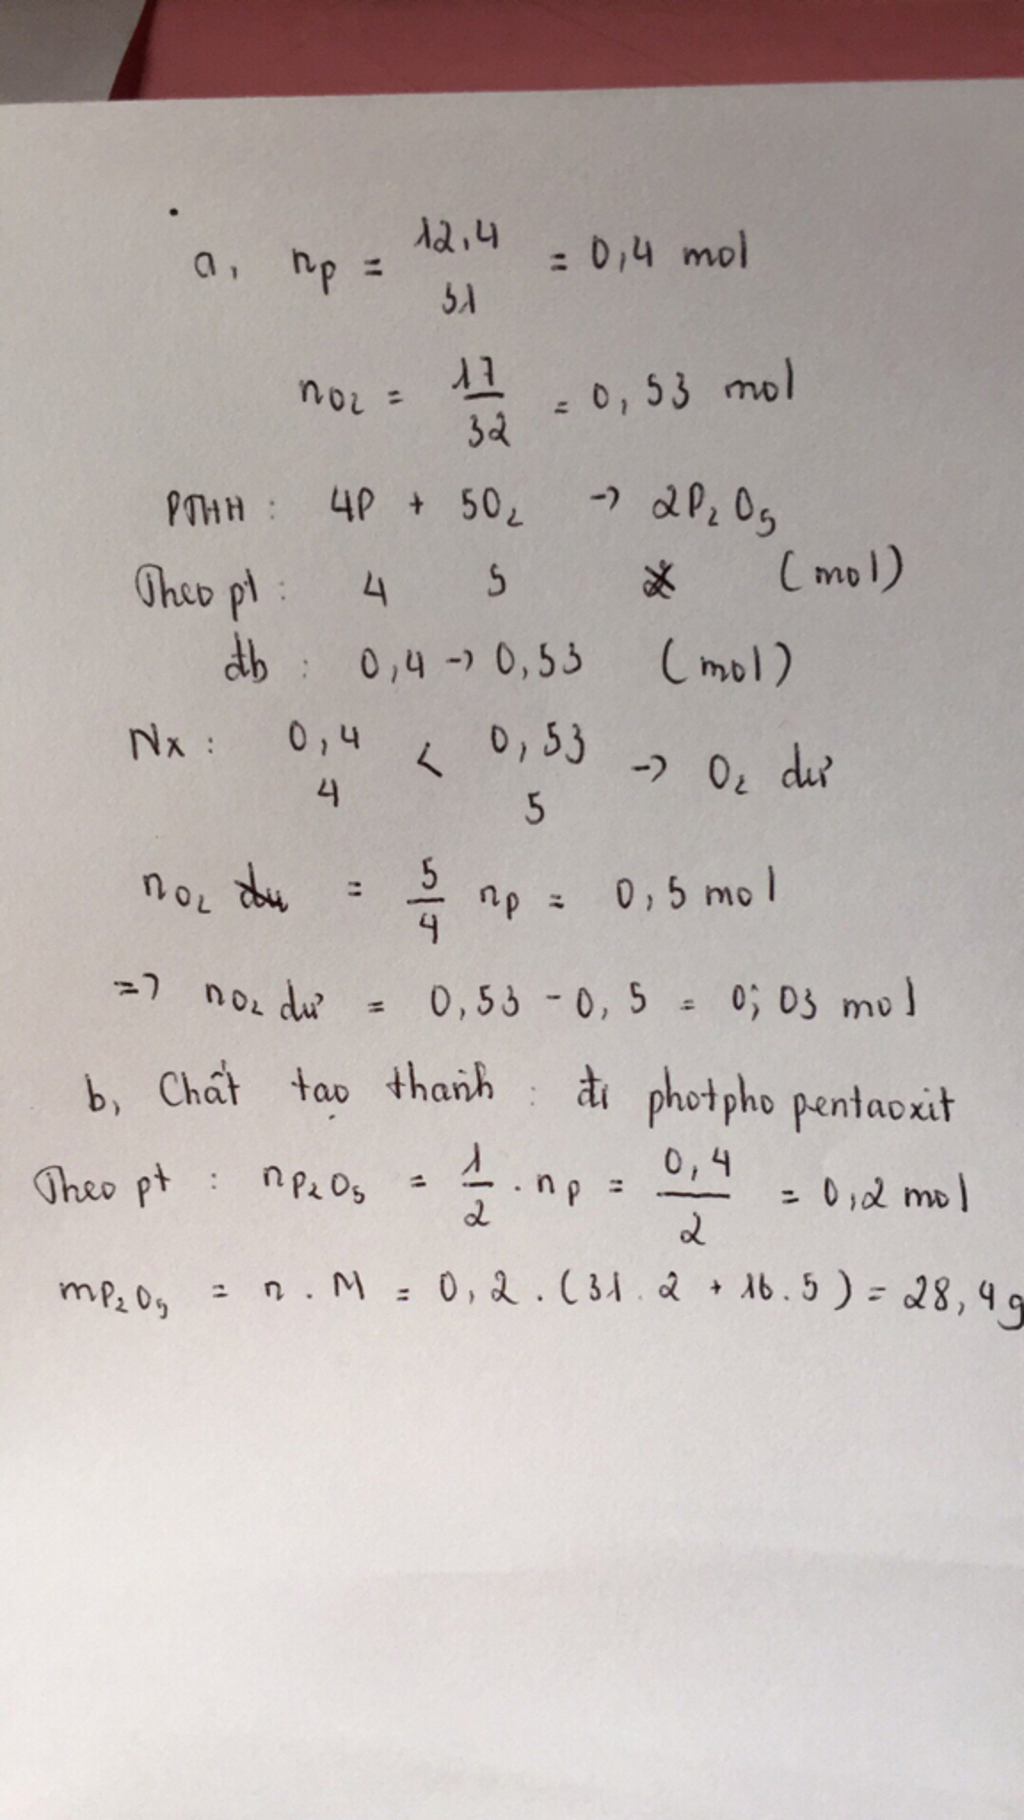 a, nP = 12,4 / 31 = 0,4 mol
nO2 = 17 / 32 = 0,53 mol
PTHH : 4P + 5O2 -> 2P2O5
Theo pt : 4 5 2 (mol)
đb : 0,4 -> 0,53 (mol)
Nx : 0,4 / 4 < 0,53 / 5 -> O2 dư
nO2 = 5 / 4 nP = 0,5 mol
=> nO2 dư = 0,53 - 0,5 = 0,03 mol
b, Chất tạo thành : đi photpho pentaoxit
Theo pt : nP2O5 = 1 / 2 . nP = 0,4 / 2 = 0,2 mol
mP2O5 = n . M = 0,2 . (31 . 2 + 16 . 5) = 28,4g